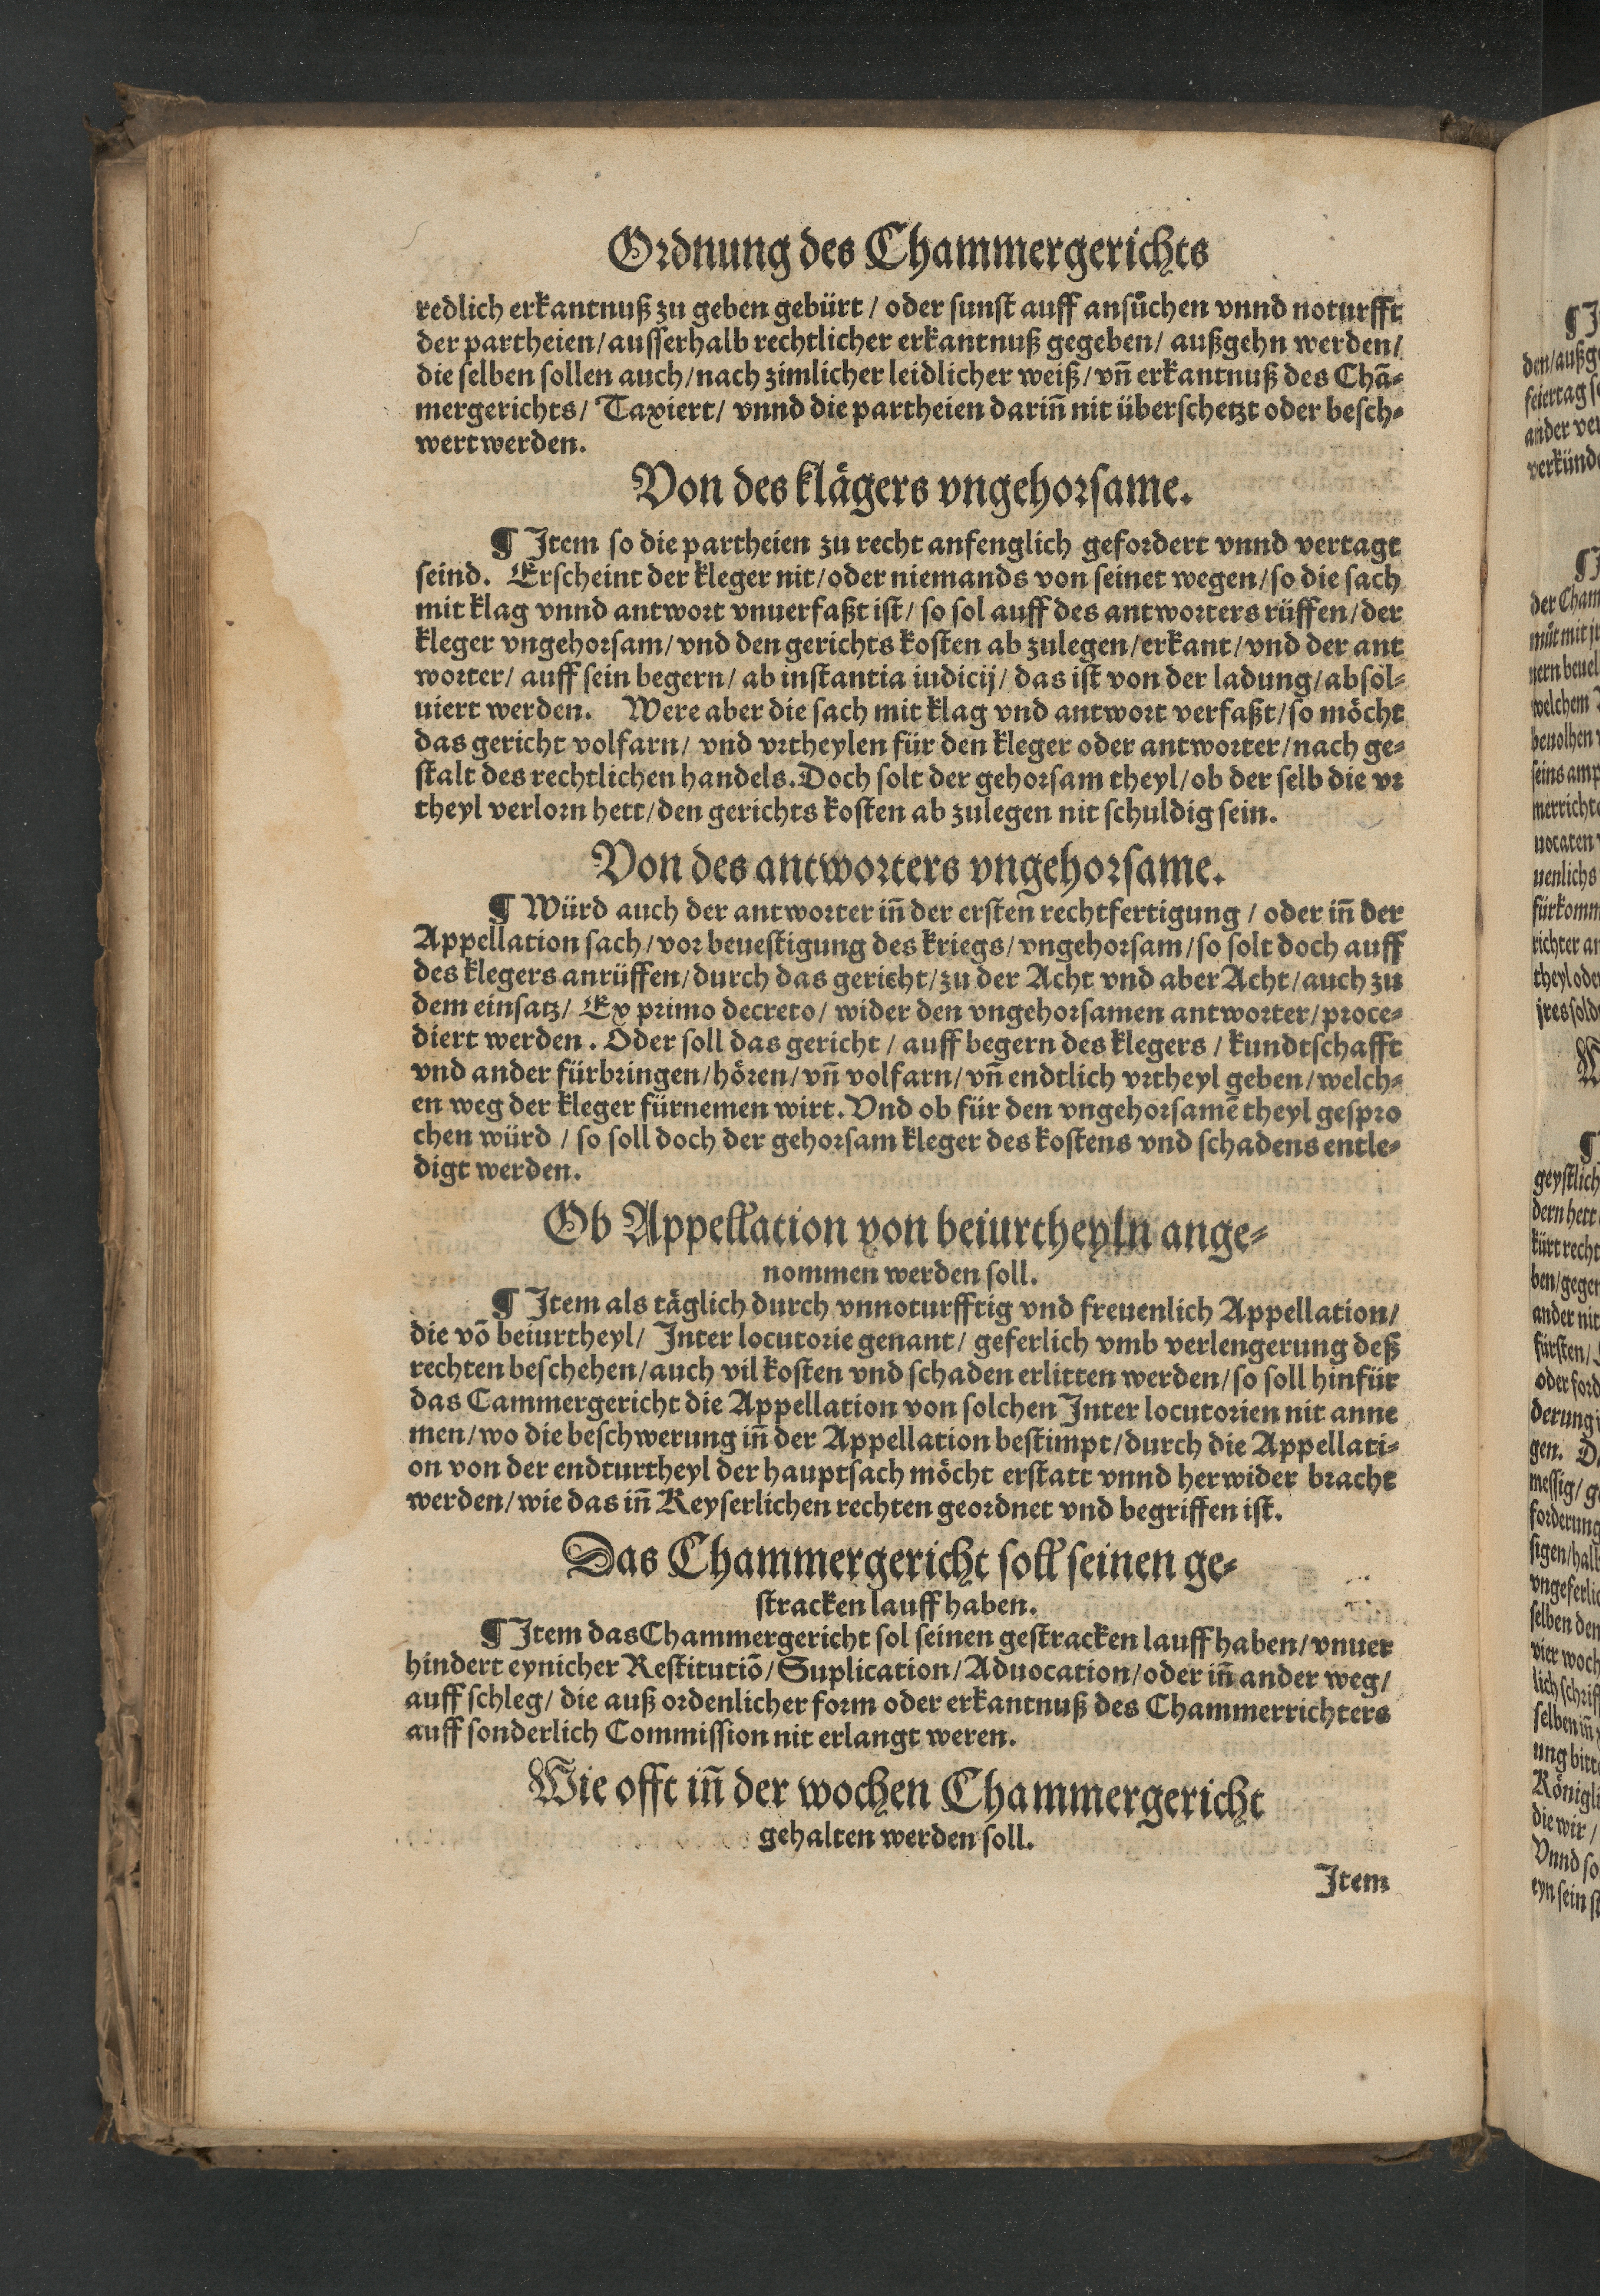 Ordnung des Chammergerichts
redlich erkantnuß zu geben gebürt / oder sunst auff ansůchen vnnd noturfft
der partheien/ ausserhalb rechtlicher erkantnuß gegeben/ außgehn werden/
die selben sollen auch/nach zimlicher leidlicher weiß/vñ erkantnuß des Chā-
mergerichts/ Taxiert/ vnnd die partheien dariñ nit überschetzt oder besch-
wert werden.
Von des klägers vngehorsame.
¶ Item so die partheien zu recht anfenglich gefordert vnnd vertagt
seind. Erscheint der kleger nit/oder niemands von seinet wegen/so die sach
mit klag vnnd antwort vnuerfaßt ist/ so sol auff des antworters rüffen/der
kleger vngehorsam/vnd den gerichts kosten ab zulegen/erkant/vnd der ant
worter/ auff sein begern/ ab instantia iudicij/ das ist von der ladung/absol-
uiert werden. Were aber die sach mit klag vnd antwort verfaßt/so möcht
das gericht volfarn/ vnd vrtheylen für den kleger oder antworter/nach ge-
stalt des rechtlichen handels. Doch solt der gehorsam theyl/ob der selb die vr
theyl verlorn hett/den gerichts kosten ab zulegen nit schuldig sein.
Von des antworters vngehorsame.
¶ Würd auch der antworter iñ der ersten rechtfertigung / oder iñ der
Appellation sach/vor beuestigung des kriegs/vngehorsam/so solt doch auff
des klegers anrüffen/durch das gericht/zu der Acht vnd aber Acht/auch zu
dem einsatz/ Ex primo decreto/ wider den vngehorsamen antworter/proce-
diert werden. Oder soll das gericht / auff begern des klegers / kundtschafft
vnd ander fürbringen/hören/vñ volfarn/vñ endtlich vrtheyl geben/welch-
en weg der kleger fürnemen wirt. Vnd ob für den vngehorsamē theyl gespro
chen würd / so soll doch der gehorsam kleger des kostens vnd schadens entle-
digt werden.
Ob Appellation von beiurtheyln ange-
nommen werden soll.
¶ Item als täglich durch vnnoturfftig vnd freuenlich Appellation/
die vō beiurtheyl/ Inter locutorie genant/ geferlich vmb verlengerung deß
rechten beschehen/auch vil kosten vnd schaden erlitten werden/so soll hinfür
das Cammergericht die Appellation von solchen Inter locutorien nit anne
men/wo die beschwerung iñ der Appellation bestimpt/durch die Appellati-
on von der endturtheyl der hauptsach möcht erstatt vnnd herwider bracht
werden/wie das iñ Keyserlichen rechten geordnet vnd begriffen ist.
Das Chammergericht soll seinen ge-
stracken lauff haben.
¶ Item das Chammergericht sol seinen gestracken lauff haben/vnuer
hindert eynicher Restitutiō/Suplication/Aduocation/oder iñ ander weg/
auff schleg/ die auß ordenlicher form oder erkantnuß des Chammerrichters
auff sonderlich Commission nit erlangt weren.
Wie offt iñ der wochen Chammergericht
gehalten werden soll.
Item